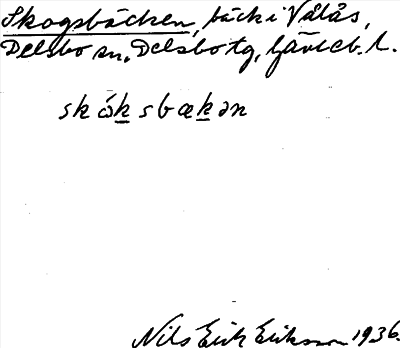 Skogsbäcken, bäck i Vålås,
Delsbo sn, Delsbo tg, Gävleb. l.
skóksbækən
Nils Erik Eriksson 1936.